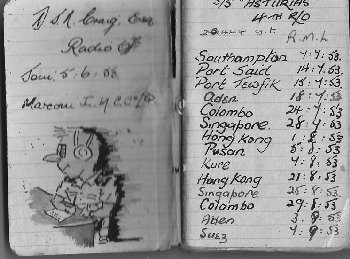 D.S.R. Craig. Esq
Radio Off
Join: 5.6.53.
Marconi I.M.C. Co/Ld
S/S "ASTURIAS
4TH R/O
R.M.L
Southampton 4.7.53.
Port Said 14.7.53
Port Teufik 15.7.53
Aden 18.7.53
Colombo 24.7.53
Singapore 28.7.53
Hong Kong 1.8.53
Pusan 5.8.53
Kure 7.8.53
Hong Kong 21.8.53
Singapore 25.8.53
Colombo 29.8.53
Aden 3.9.53
Suez 7.9.53